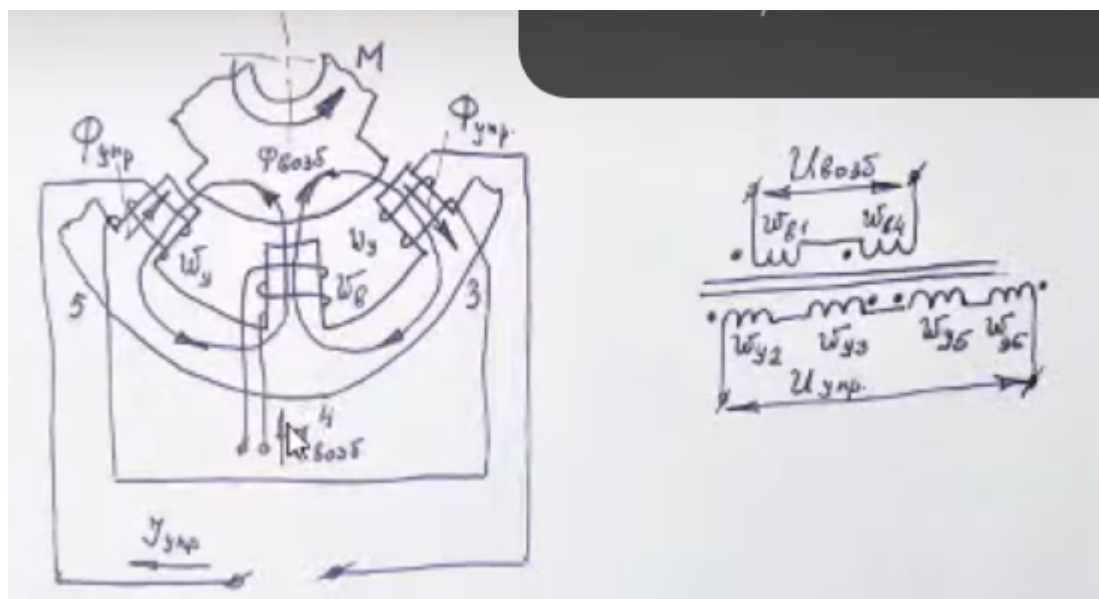 M
Фупр
Фупр.
Фвозб
Wу
Wу
Wв
5
3
4
возб
Jупр
Uвозб
Wв1
Wв4
Wу2
Wу3
Wу5
Wу6
Uупр.